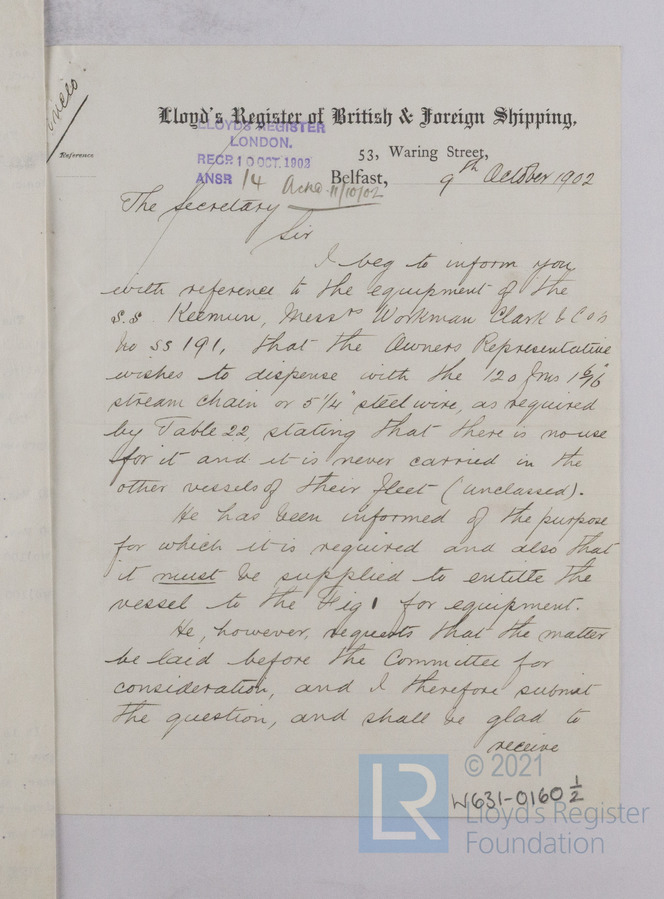 Reference
Lloyd's Register of British & Foreign Shipping,
LLOYD'S REGISTER
LONDON.
RECD 10 OCT. 1902
ANSR 14 Ackd. 11/10/02
53, Waring Street,
Belfast, 9th October 1902
The Secretary
Sir
I beg to inform you
with reference to the equipment of the
S.S. Keemun, Messrs Workman Clark & Co's
No SS 191, that the Owners Representative
wishes to dispense with the 120 fms 1 6/16"
stream chain or 5 1/4" steel wire, as required
by Table 22, stating that there is no use
for it and it is never carried in the
other vessels of their fleet (unclassed).
He has been informed of the purpose
for which it is required and also that
it must be supplied to entitle the
vessel to the Fig 1 for equipment.
He, however, requests that the matter
be laid before the Committee for
consideration, and I therefore submit
the question, and shall be glad to
receive
W631-0160 1/2
LR
© 2021
Lloyd's Register
Foundation